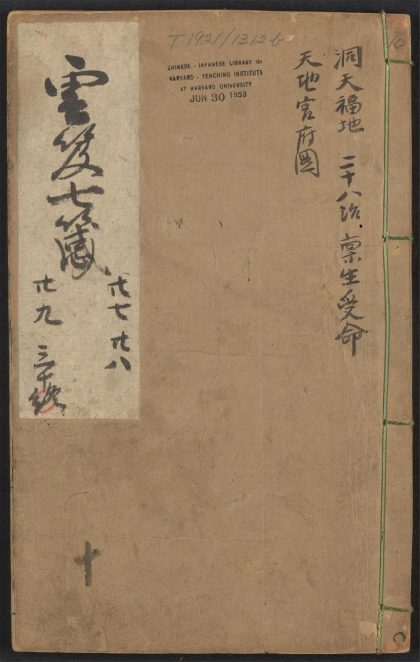 T 1921/1312 b
10
CHINESE - JAPANESE LIBRARY OF
HARVARD - YENCHING INSTITUTE
AT HARVARD UNIVERSITY
JUN 30 1953
洞天福地 二十八治 稟生受命
天地宮府圖
雲笈七籤
廿七 廿八
廿九 三十
十